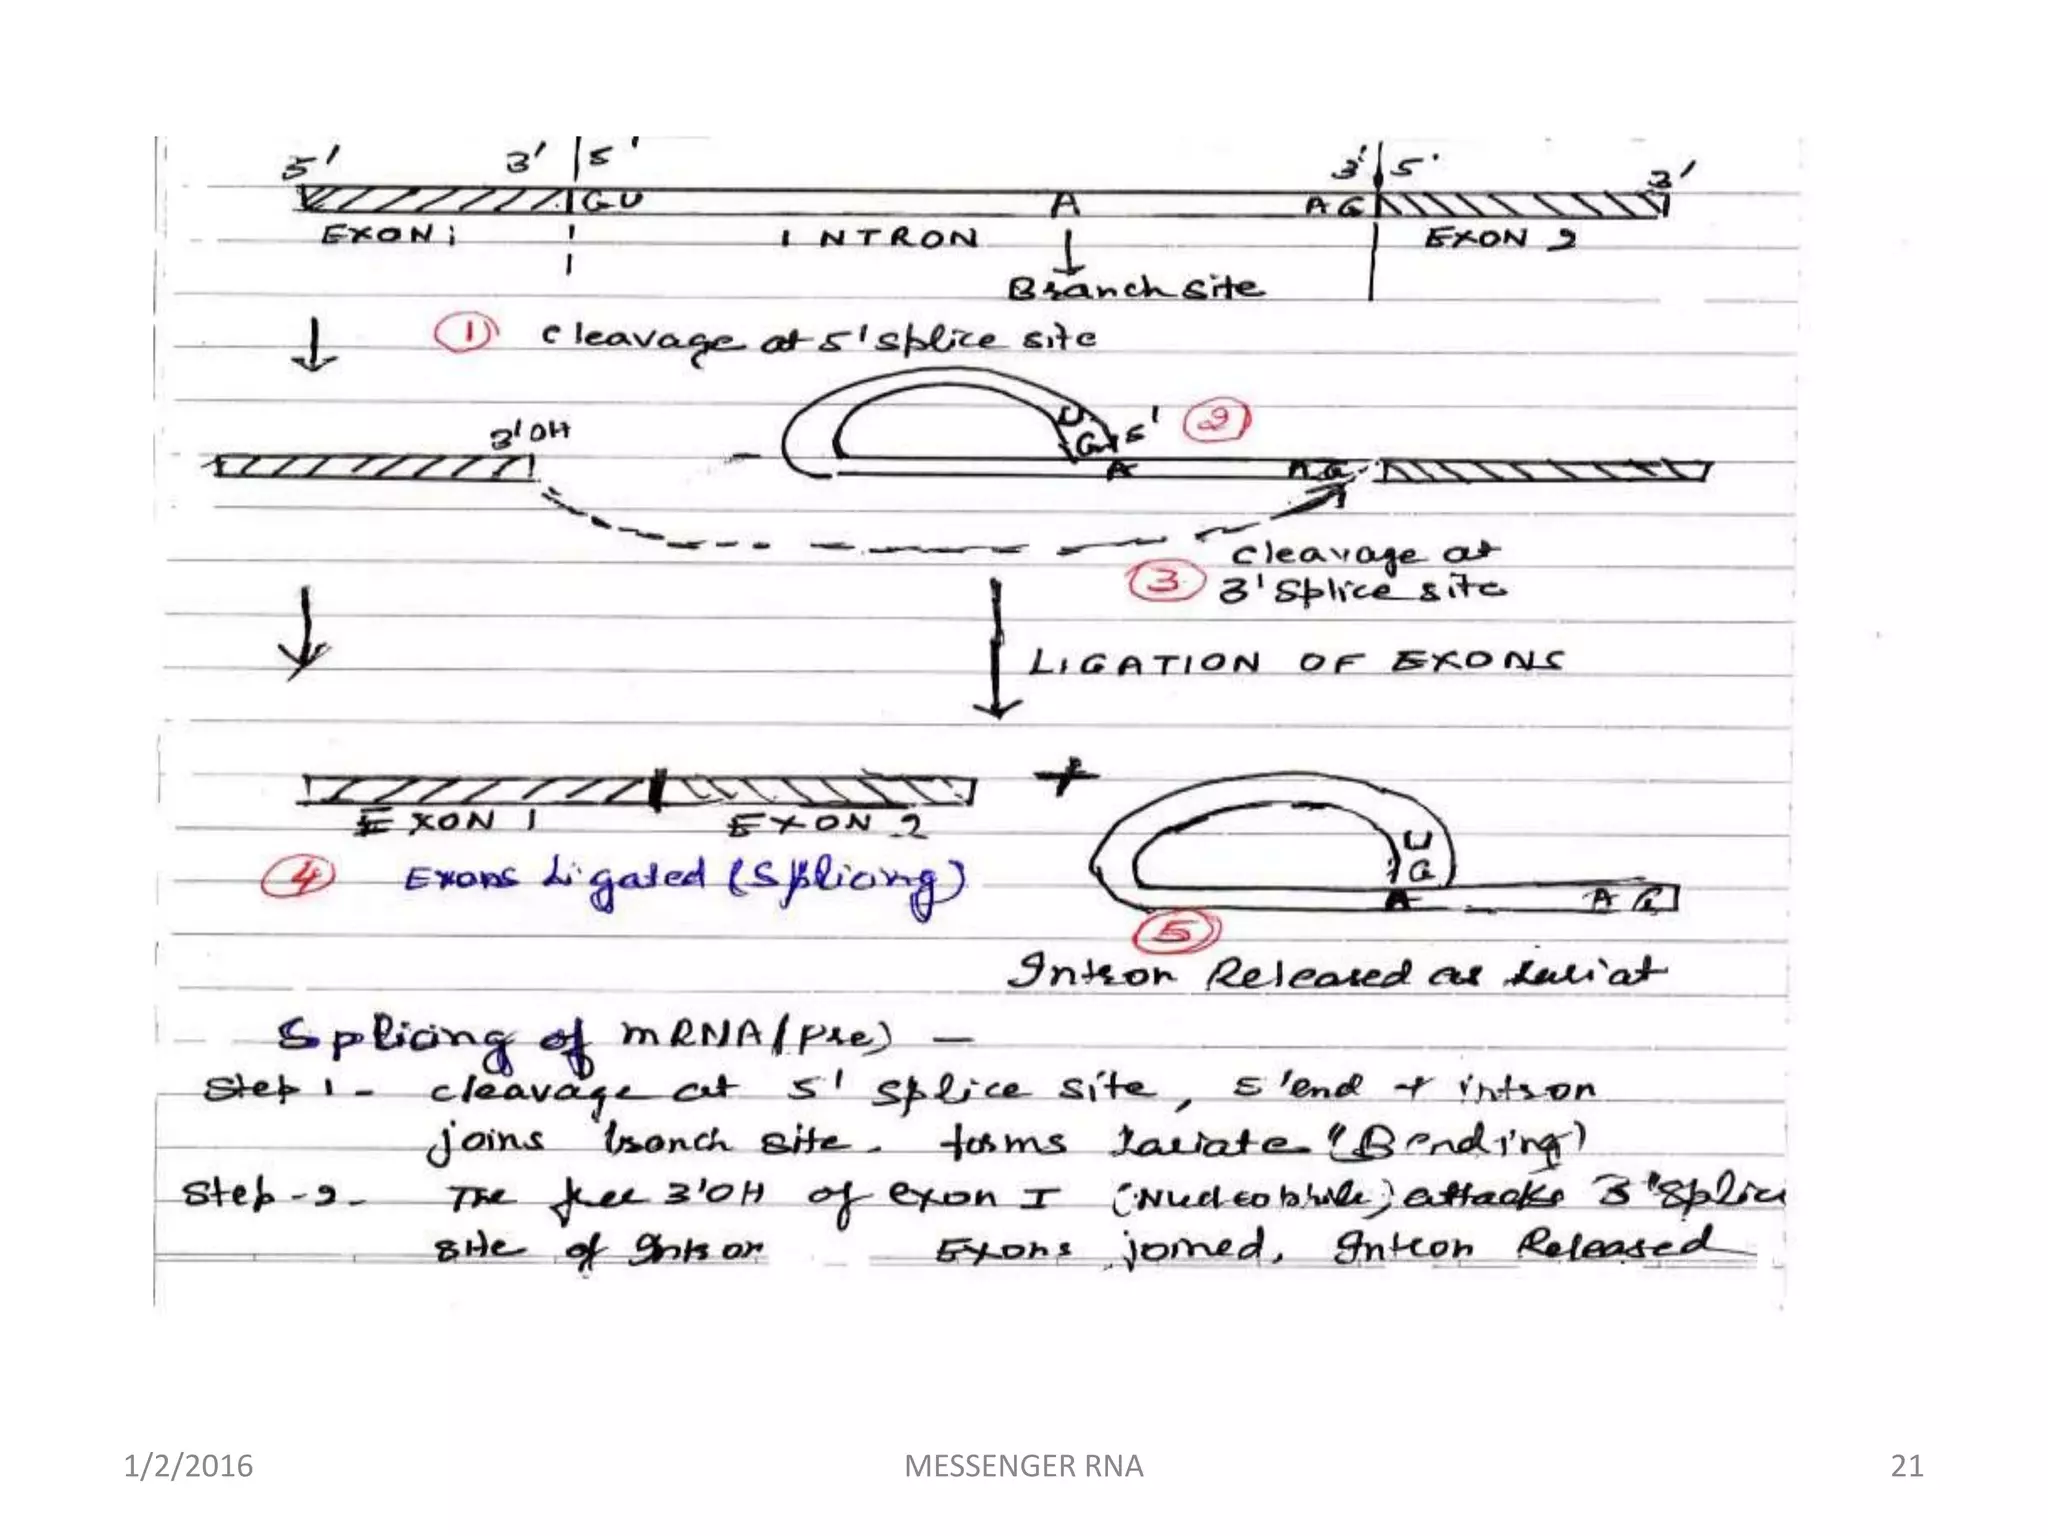 5' 3' 5' 3' 5' 3'
GU A AG
EXON 1 INTRON EXON 2
Branch site
1 cleavage at 5' splice site
3'OH U G 5' 2
A AG
cleavage at
3 3' splice site
LIGATION OF EXONS
+
EXON 1 EXON 2
U
G
4 Exons Ligated (Splicing)
A AG
5
Intron Released as Lariat
Splicing of mRNA (Pre) -
Step 1 - cleavage at 5' splice site, 5' end + intron
joins branch site. forms Lariate (Bending)
Step - 2 - The free 3'OH of exon I (Nucleophile) attacks 3' Splice
site of Intron Exons joined, Intron Released
1/2/2016 MESSENGER RNA 21